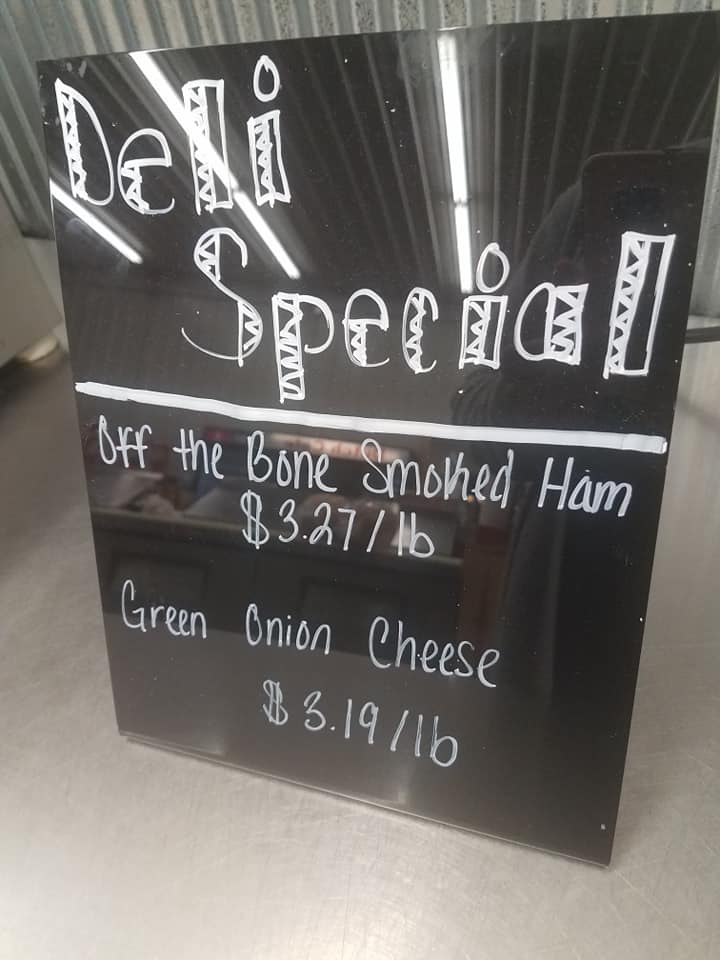 Deli
Special
Off the Bone Smoked Ham
$3.27/lb
Green Onion Cheese
$3.19/lb